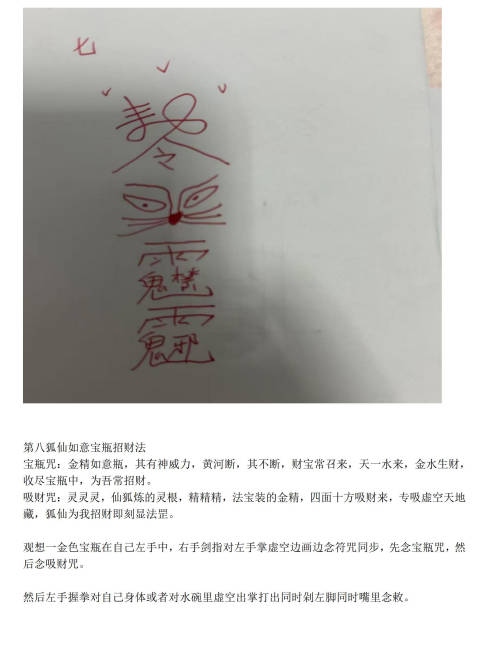 七
令
第八狐仙如意宝瓶招财法
宝瓶咒：金精如意瓶，其有神威力，黄河断，其不断，财宝常召来，天一水来，金水生财，
收尽宝瓶中，为吾常招财。
吸财咒：灵灵灵，仙狐炼的灵根，精精精，法宝装的金精，四面十方吸财来，专吸虚空天地
藏，狐仙为我招财即刻显法罡。
观想一金色宝瓶在自己左手中，右手剑指对左手掌虚空边画边念符咒同步，先念宝瓶咒，然
后念吸财咒。
然后左手握拳对自己身体或者对水碗里虚空出掌打出同时剁左脚同时嘴里念敕。